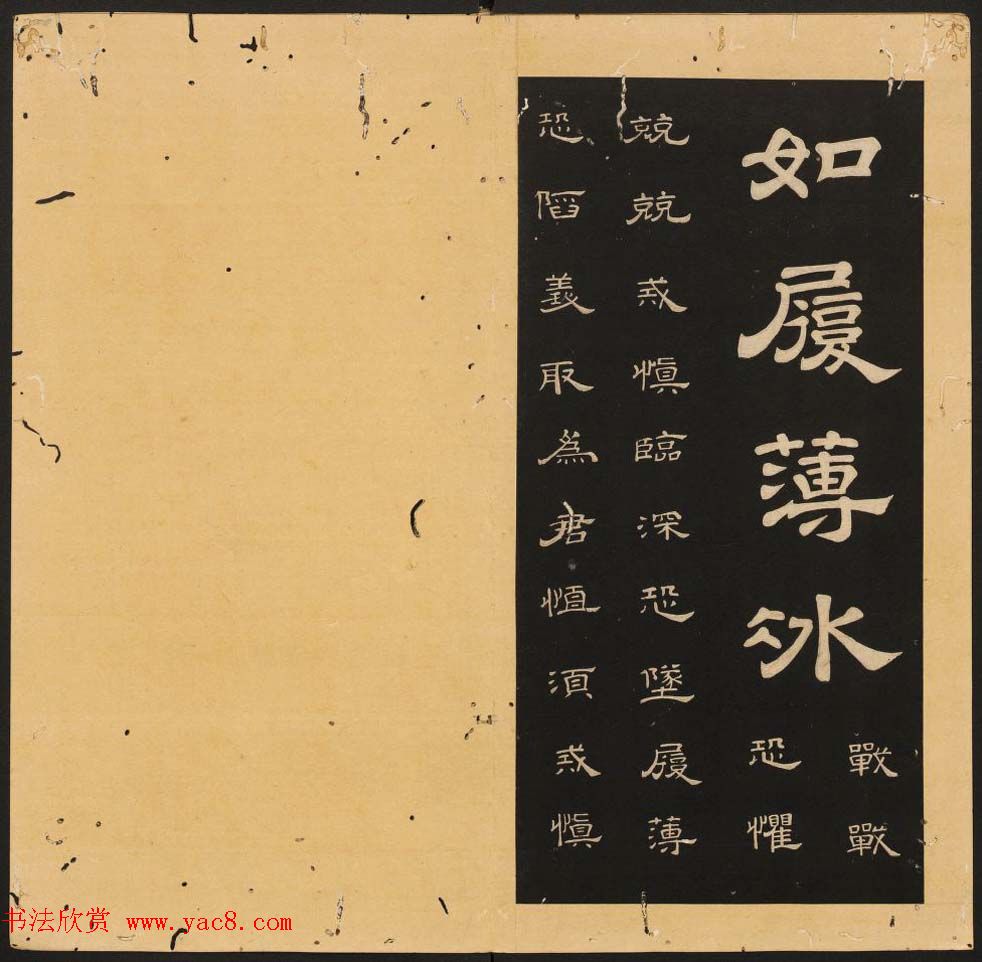 如履薄冰
戰戰
恐懼
兢兢戒慎臨深恐墜履薄
恐陷義取為君恒須戒慎
书法欣赏 www.yac8.com